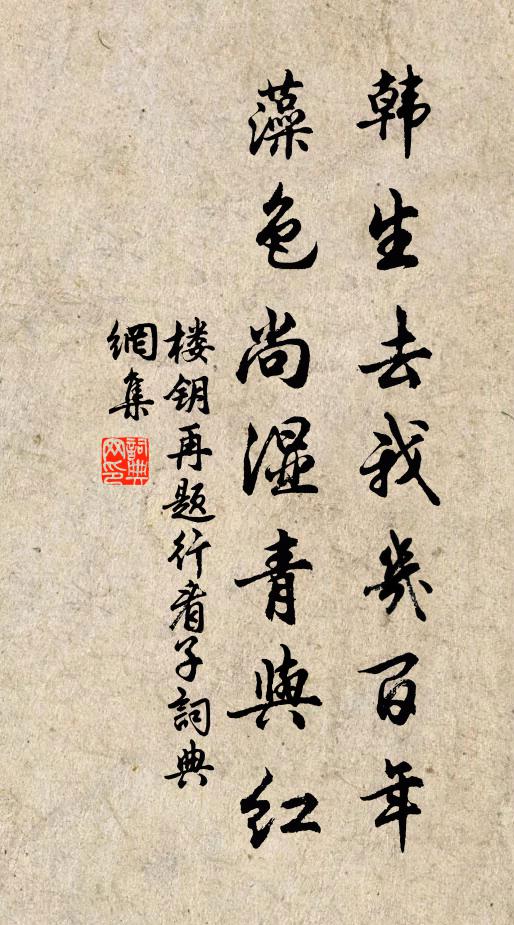 韩生去我幾百年
藻色尚湿青與红
楼钥再题行看子詞典
網集
詞典网印